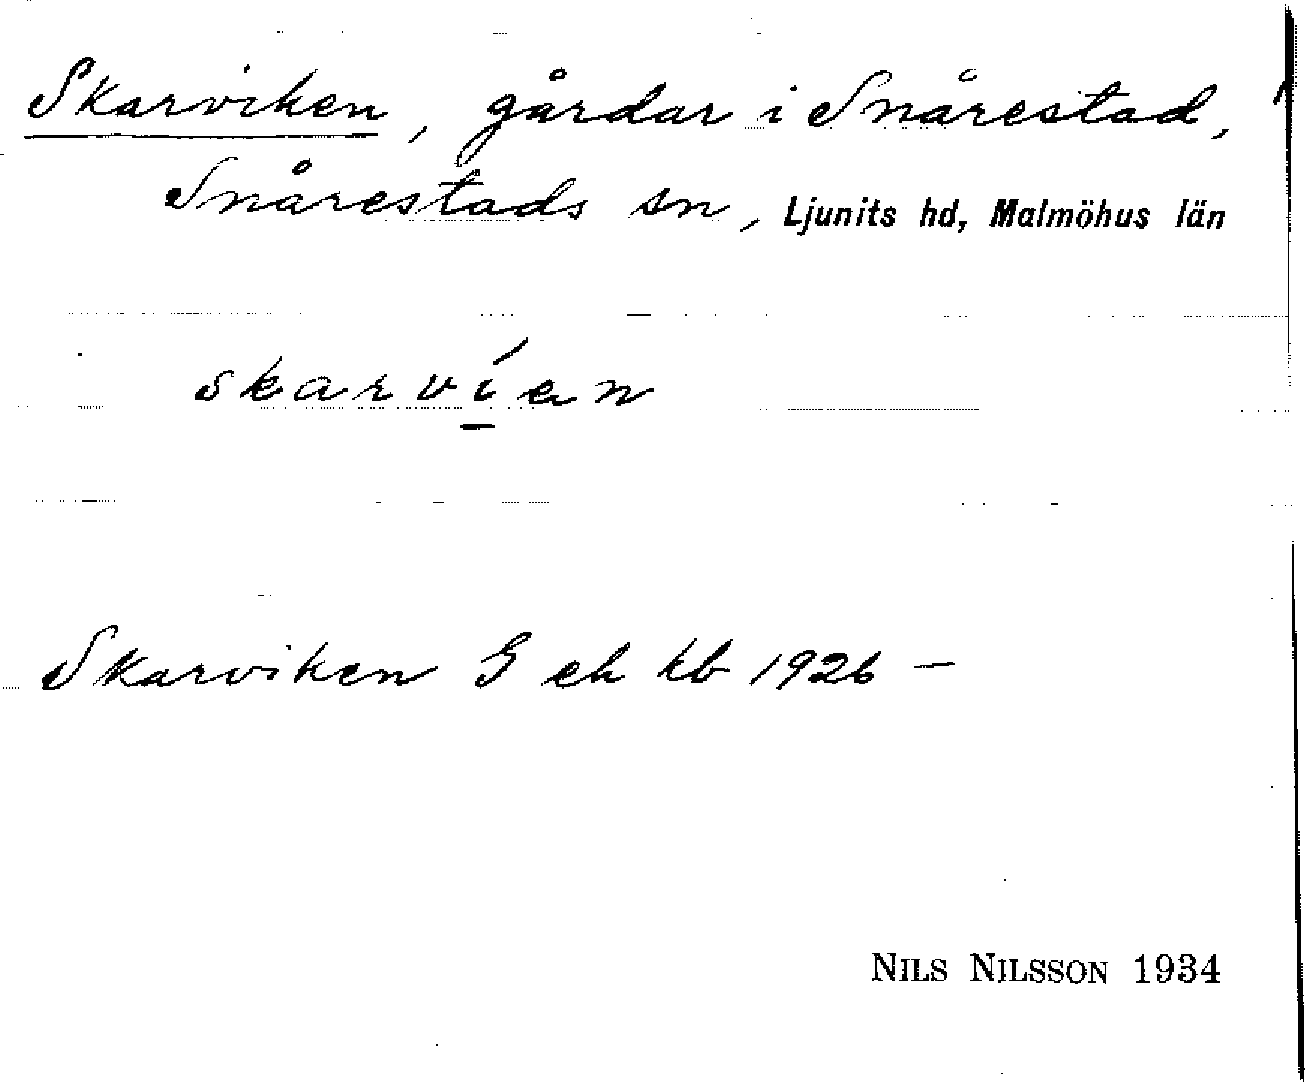 Skarviken, gårdar i Snårestad,
Snårestads sn, Ljunits hd, Malmöhus län
skarvían
Skarviken G eh kb 1926 –
NILS NILSSON 1934